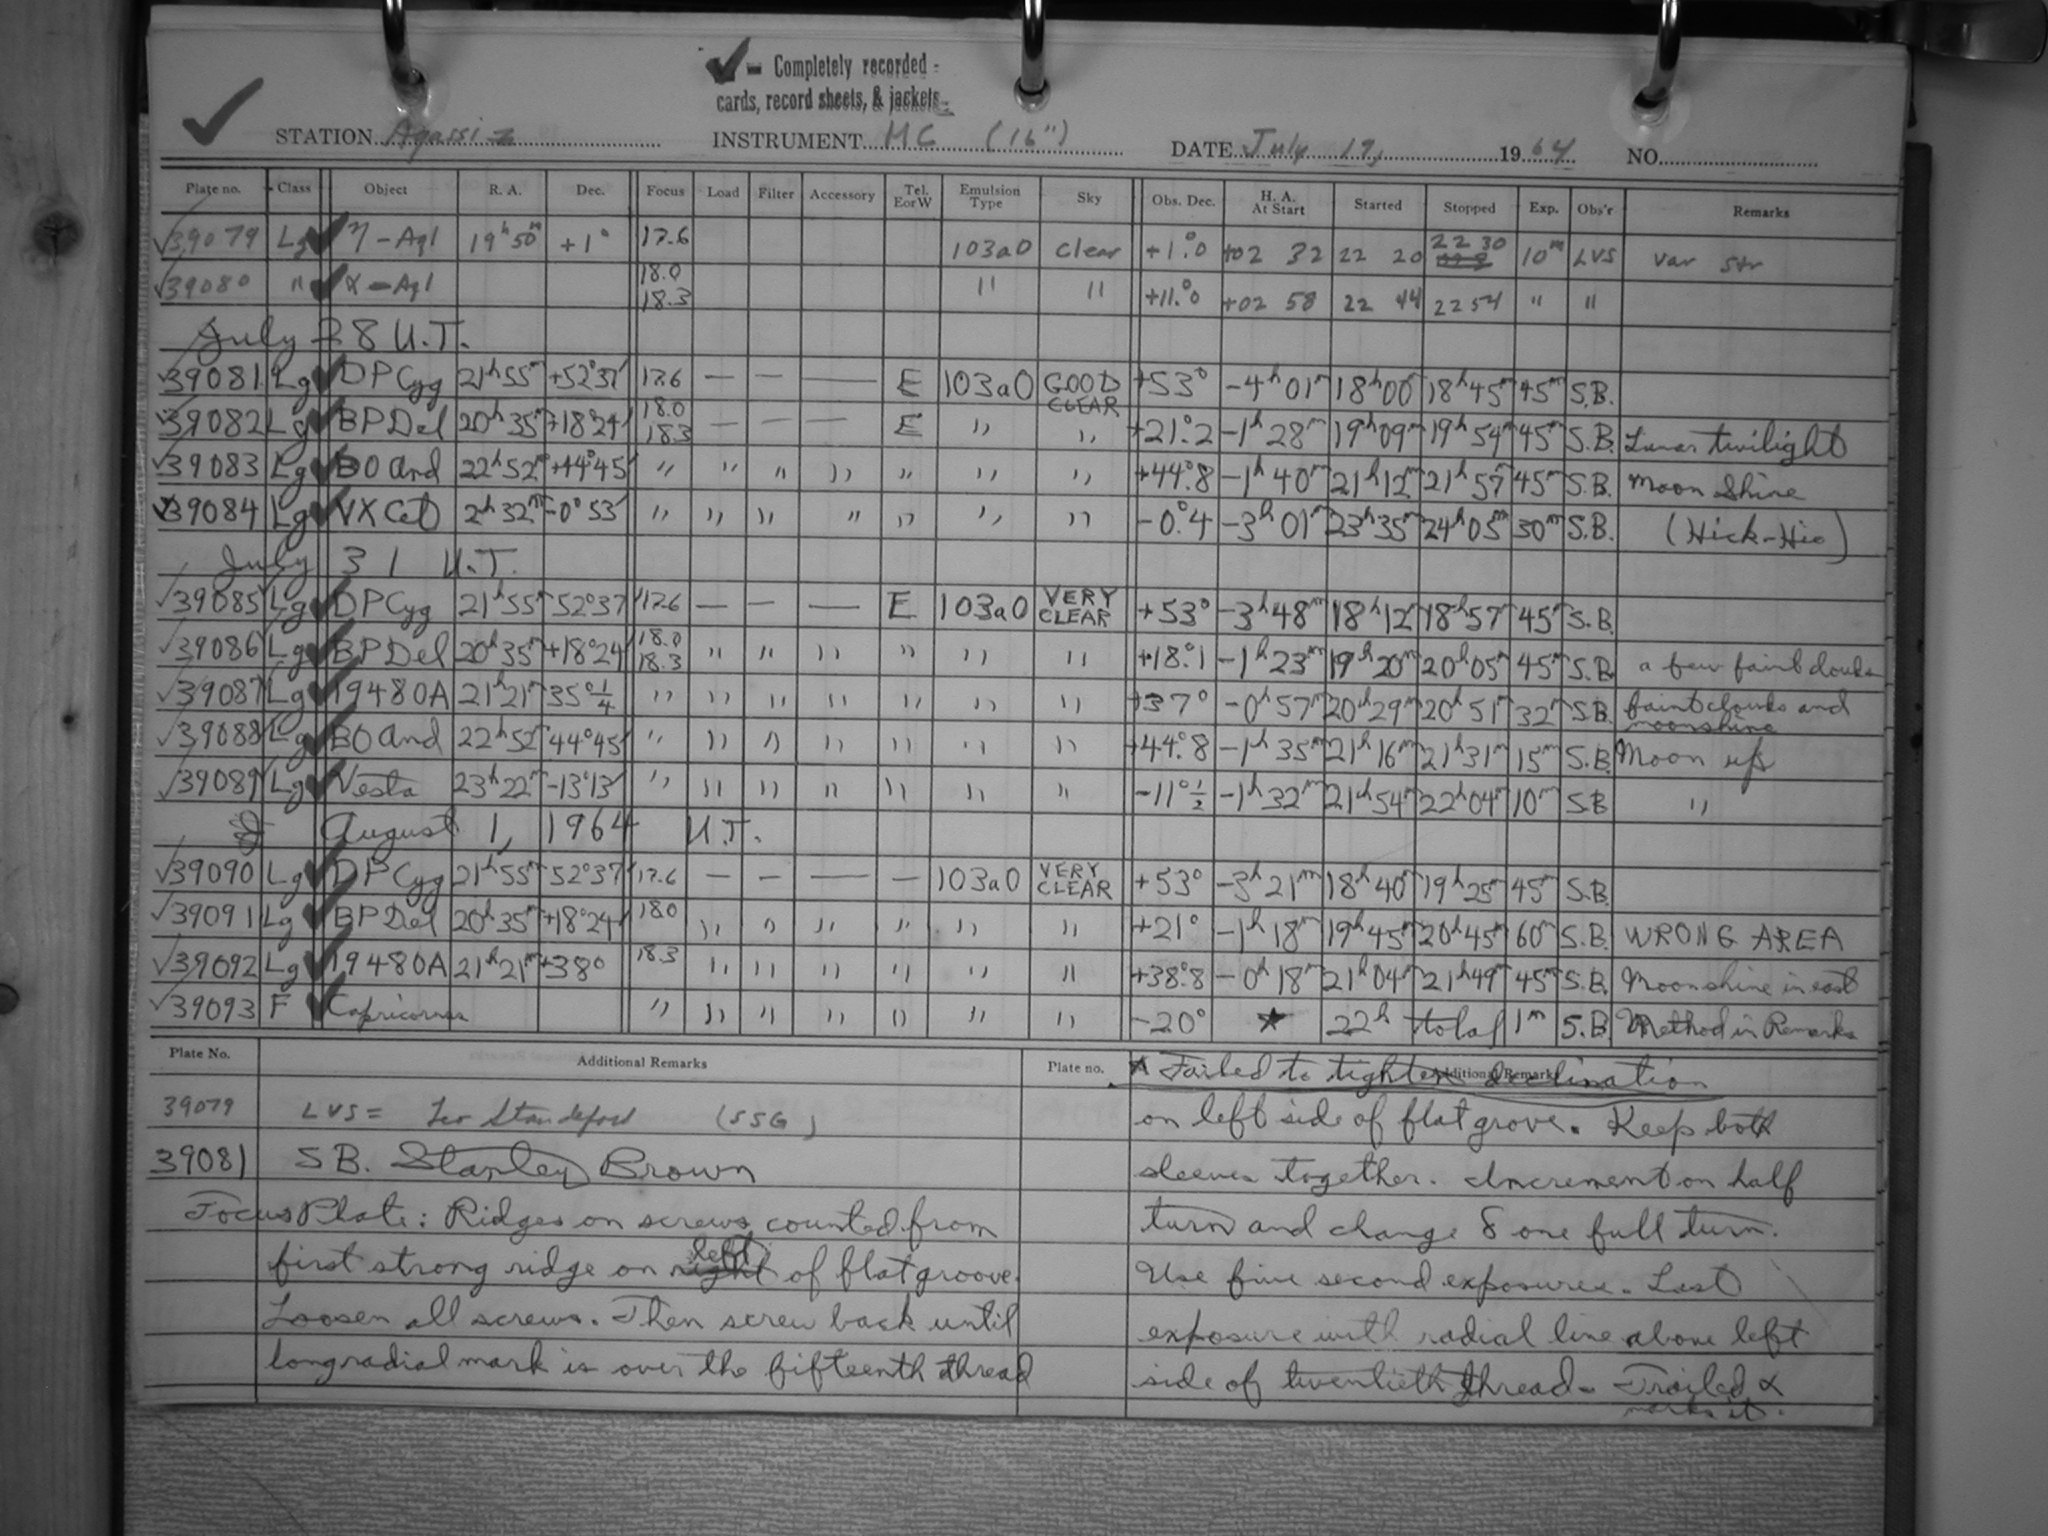 ✓ = Completely recorded -
cards, record sheets, & jackets.
STATION Agassiz INSTRUMENT MC (16") DATE July 19, 1964 NO.
Plate no. Class Object R. A. Dec. Focus Load Filter Accessory Tel. E or W Emulsion Type Sky Obs. Dec. H. A. At Start Started Stopped Exp. Obs'r Remarks
39079 Lg η-Aql 19h 50m +1° 17.6 103a0 clear +1.°0 +02 32 22 20 22 30 10m LVS var str
39080 " α-Aql 18.0 18.3 " " +11.°0 +02 58 22 44 22 54 " "
July 28 U.T.
39081 Lg DP Cyg 21h 55m +52°37' 17.6 — — — E 103a0 GOOD CLEAR +53° -4h 01m 18h00m 18h45m 45m S.B.
39082 Lg BP Del 20h 35m +18°24' 18.0 18.3 — — — E " " +21.°2 -1h 28m 19h09m 19h54m 45m S.B. Lunar twilight
39083 Lg BO And 22h 52m +44°45' " " " " " " " +44.°8 -1h 40m 21h12m 21h57m 45m S.B. Moon Shine
39084 Lg VX Cet 2h 32m -0°53' " " " " " " " -0.°4 -3h 01m 23h35m 24h05m 30m S.B. (Hick-Hic)
July 31 U.T.
39085 Lg DP Cyg 21h 55m 52°37' 17.6 — — — E 103a0 VERY CLEAR +53° -3h 48m 18h12m 18h57m 45m S.B.
39086 Lg BP Del 20h 35m +18°24' 18.0 18.3 " " " " " " +18.°1 -1h 23m 19h20m 20h05m 45m S.B. a few faint clouds
39087 Lg 19480A 21h 21m 35°1/4 " " " " " " " +37° -0h 57m 20h29m 20h51m 32m S.B. faint clouds and moonshine
39088 Lg BO And 22h 52m 44°45' " " " " " " " +44.°8 -1h 35m 21h16m 21h31m 15m S.B. Moon up
39089 Lg Vesta 23h 22m -13°13' " " " " " " " -11°1/2 -1h 32m 21h54m 22h04m 10m S.B "
August 1, 1964 U.T.
39090 Lg DP Cyg 21h 55m 52°37' 17.6 — — — — 103a0 VERY CLEAR +53° -3h 21m 18h40m 19h25m 45m S.B.
39091 Lg BP Del 20h 35m +18°24' 18.0 " " " " " " +21° -1h 18m 19h45m 20h45m 60m S.B. WRONG AREA
39092 Lg 19480A 21h 21m +38° 18.3 " " " " " " +38.°8 -0h 18m 21h04m 21h49m 45m S.B. Moonshine in east
39093 F Capricornus " " " " " " " -20° ★ 22h total 1m S.B Method in Remarks
Plate No. Additional Remarks Plate no. Additional Remarks
39079 LVS = Leo Standeford (SSG)
39081 SB. Stanley Brown
Focus Plate: Ridges on screws counted from
first strong ridge on right left of flat groove.
Loosen all screws. Then screw back until
long radial mark is over the fifteenth thread
★ Failed to tighten declination
on left side of flat grove. Keep both
sleeves together. Increment on half
turn and change δ one full turn.
Use five second exposures. Last
exposure with radial line above left
side of twentieth thread - Trailed α
marks it.